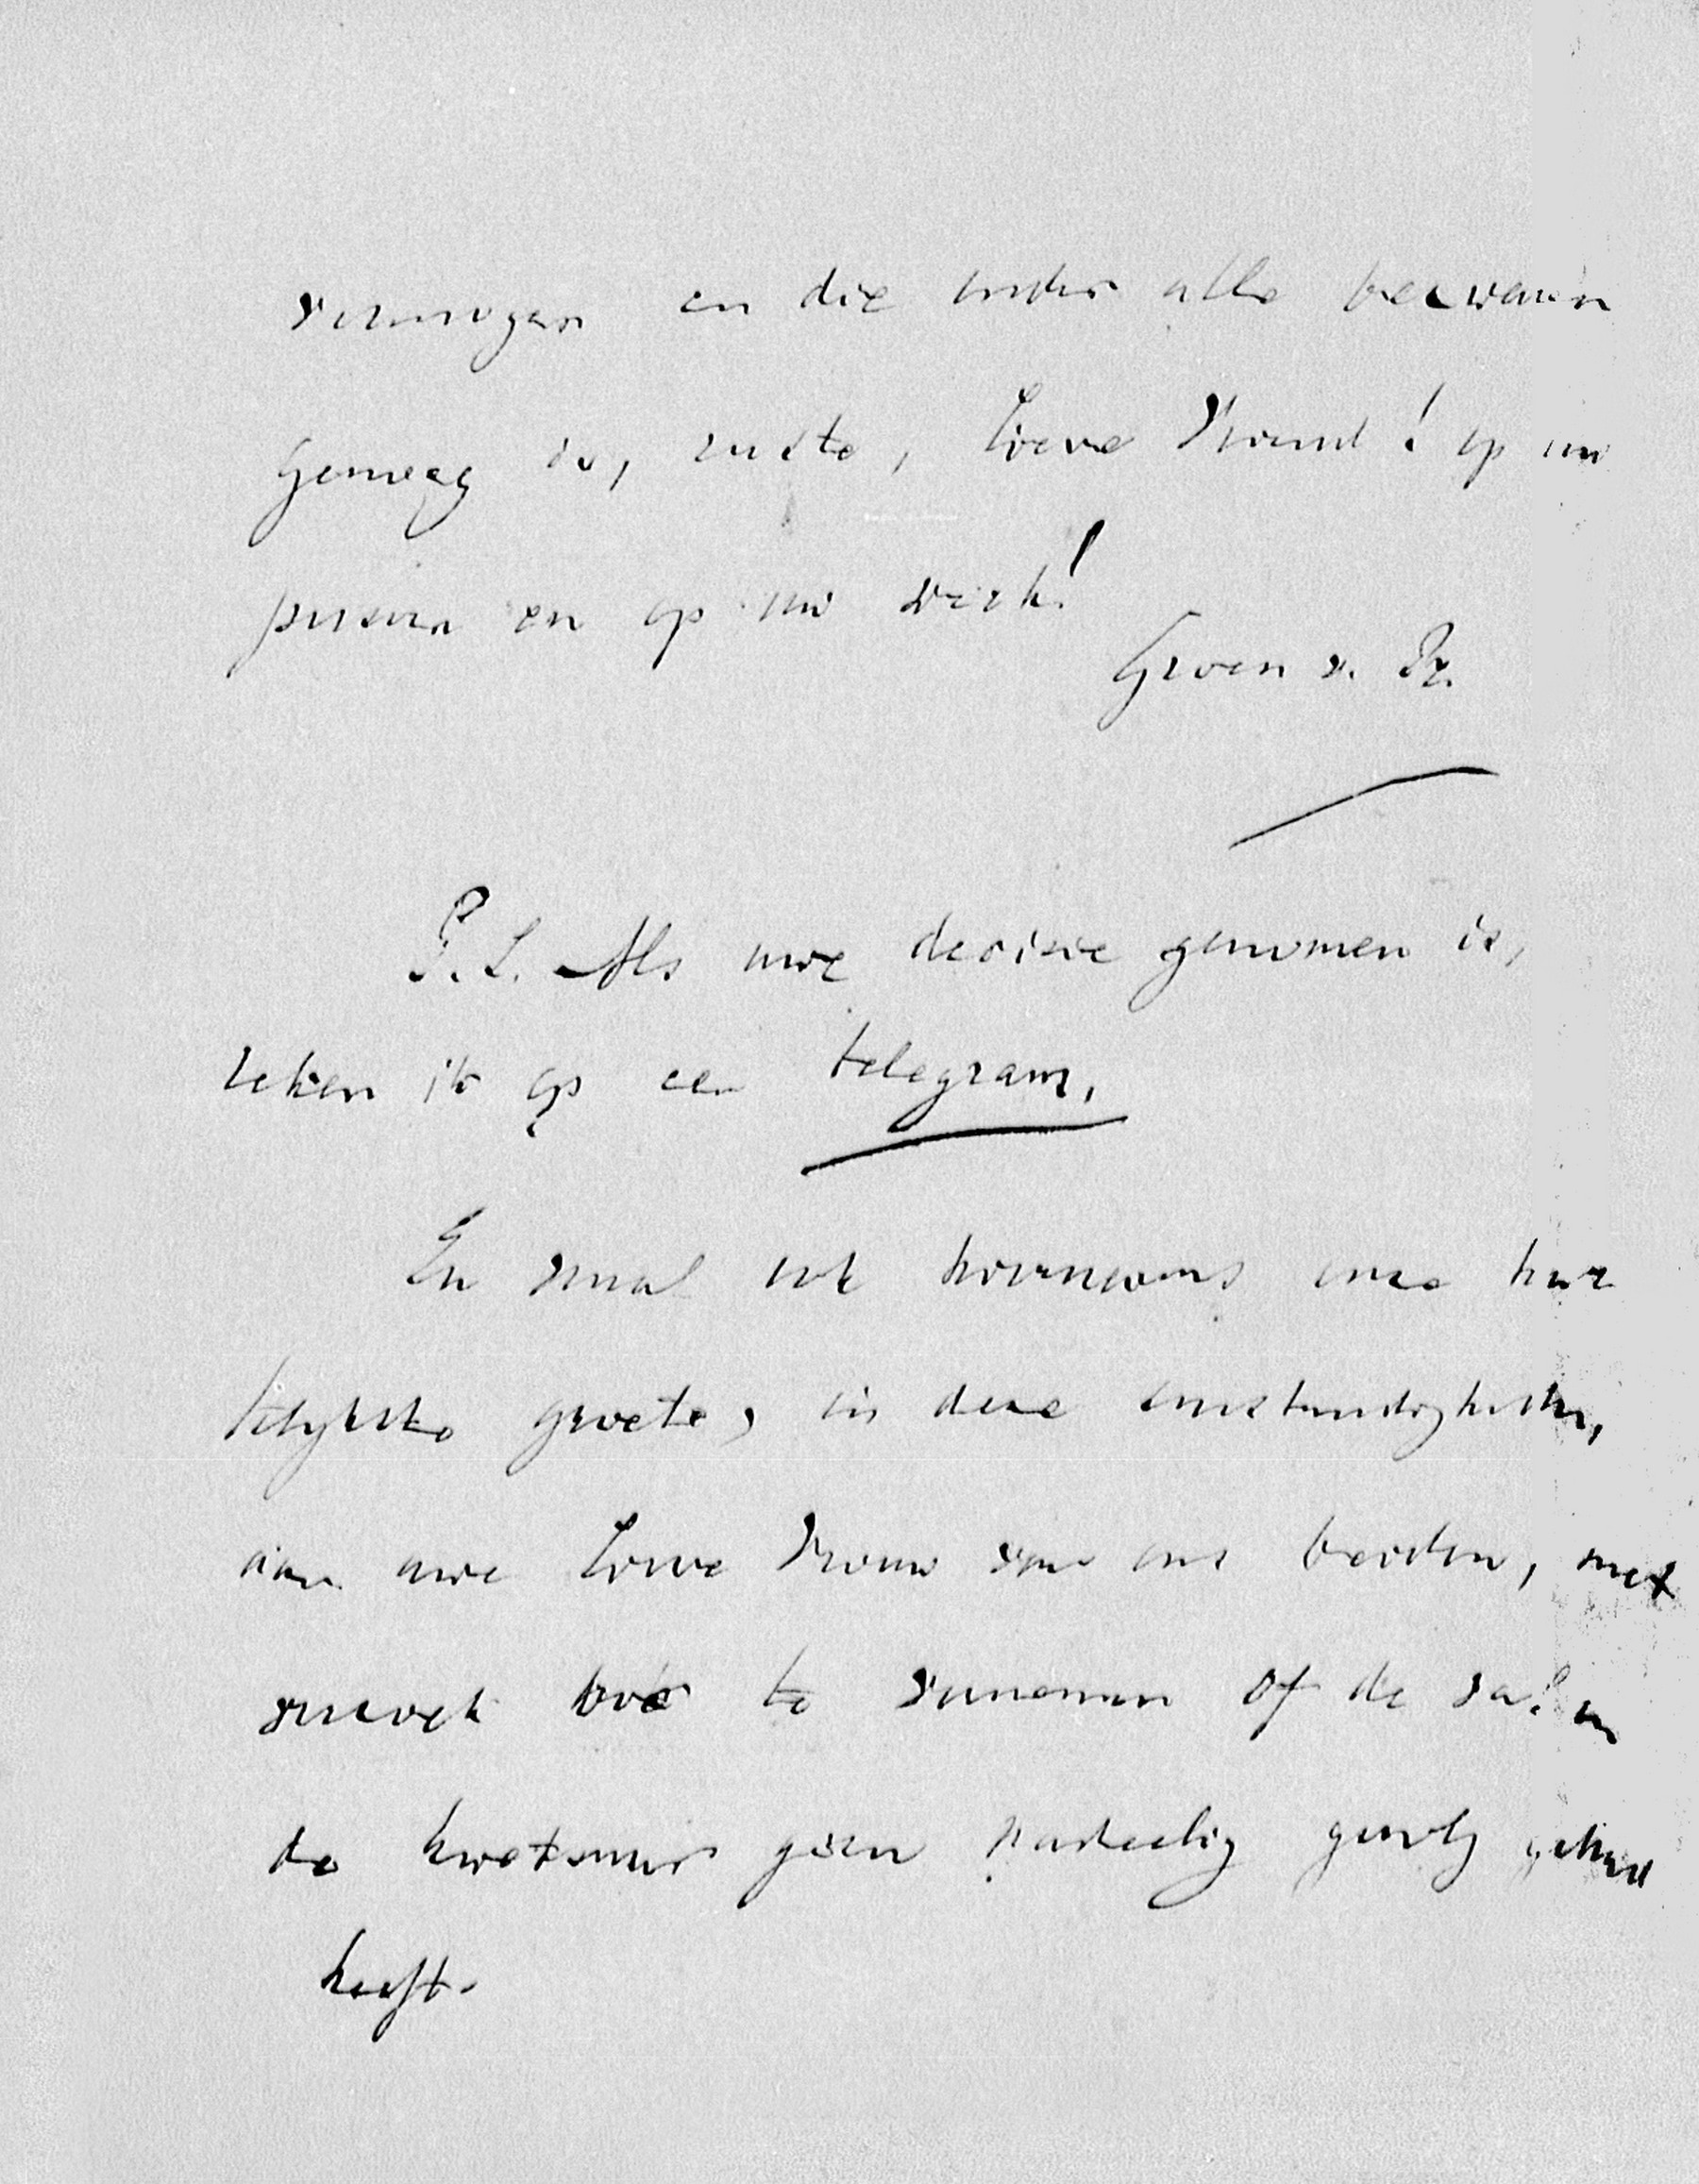 vermogen en die onder alle bezwaren
genoeg is, ruste, Lieve Vriend! op uw
persoon en op uw werk!
Groen v. Pr.
P.S. Als uwe decisie genomen is,
reken ik op een telegram.
En vooral ook hiernevens onze har
telykste groete, in deze omstandigheden,
aan uwe Lieve Vrouw van ons beiden, met
verzoek te vernemen of de val en
de kwetsuur geen nadeelig gevolg gehad
heeft.